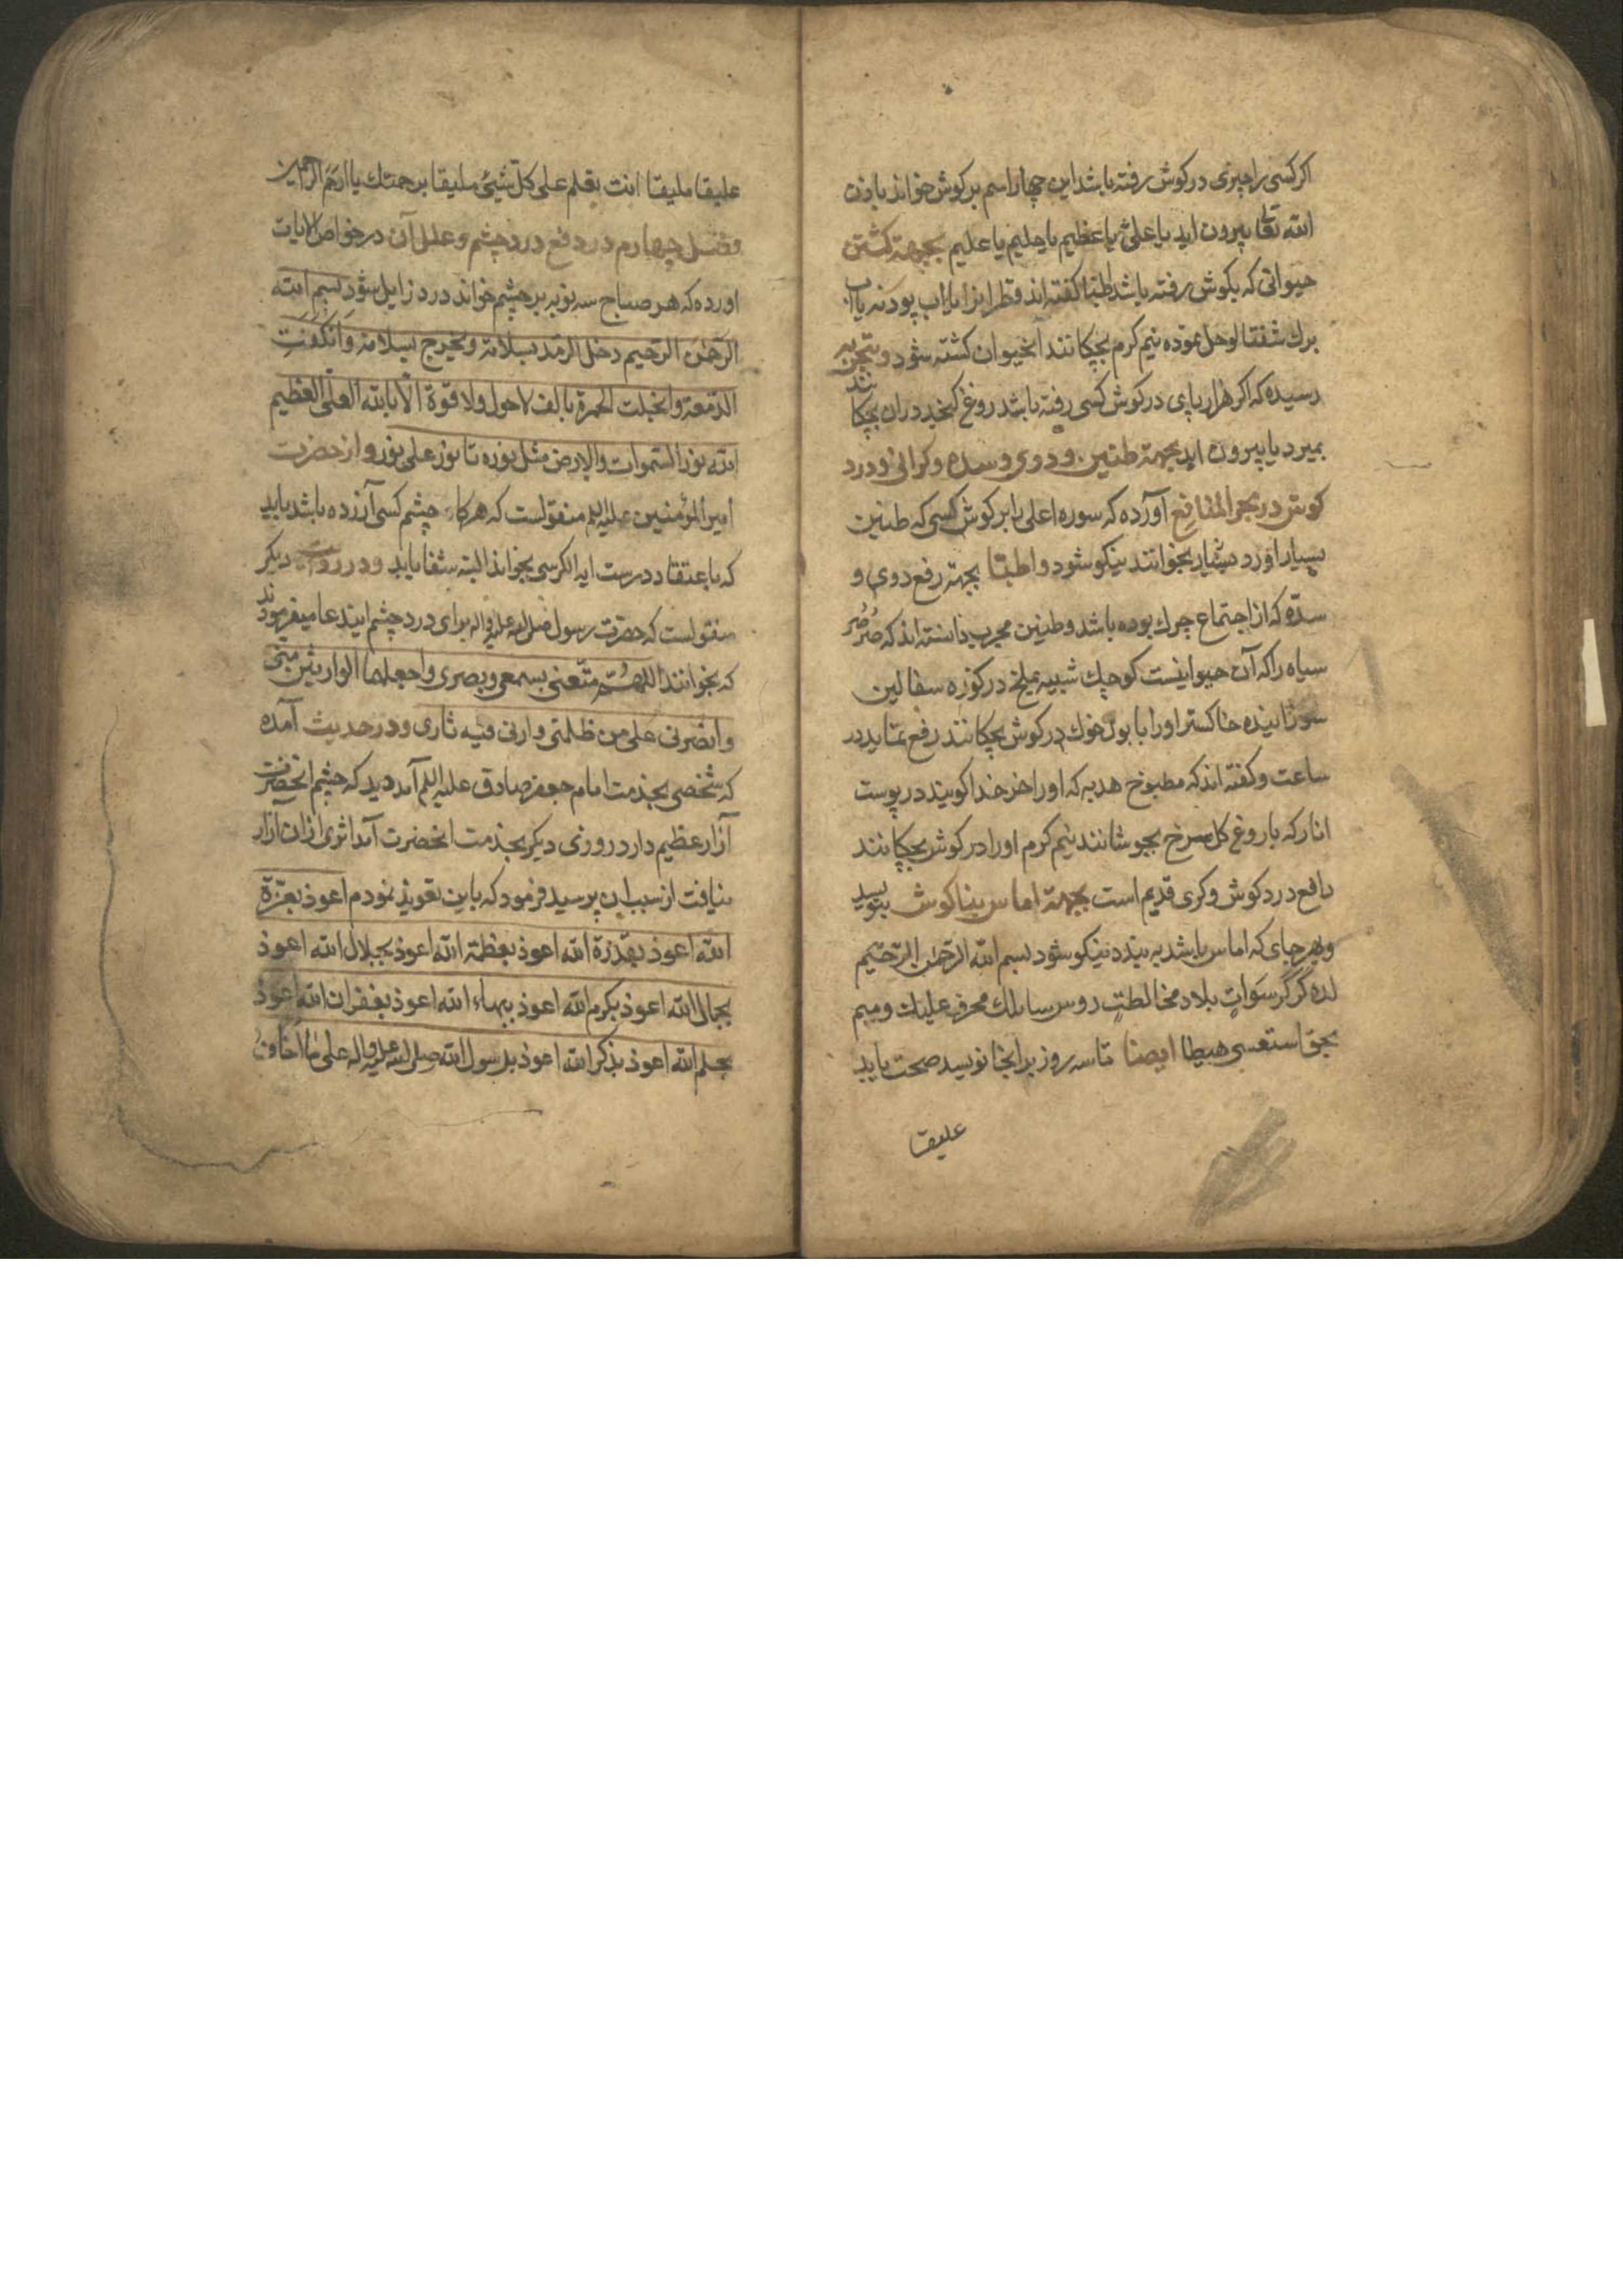 اکر کسی را چیزی در کوش رفته باشد این چهار اسم بر کوش خواند باذن
الله تعالی بیرون اید یا علی یا عظیم یا حلیم یا علیم بجهة کشتن
حیوانی که بکوش رفته باشد اطبا کفته اند قطرانرا با اب پودنه یا اب
برك شفتالو حل نموده نیم کرم بچکانند آنحیوان کشته شود و بتجربه
رسیده که اکر هزار پای در کوش کسی رفته باشد روغن کنجد در ان بچکانند
بمیرد یا بیرون اید بجهة طنین و دوی و سده و کرانی و درد
کوش در بحر المنافع آورده که سوره اعلی را بر کوش کسی که طنین
بسیار اورد بخوانند نیکو شود و اطبا بجهة رفع دوی و
سدّه که از اجتماع چرك بوده باشد و طنین مجرب دانسته اند که صُرصُر
سیاه را که آن حیوانیست کوچك شبیه بملخ در کوزه سفالین
سوزانیده خاکستر اورا با بول خوك در کوش بچکانند رفع نماید در
ساعت و کفته اند که مطبوخ هدبه که اورا خر خدا کویند در پوست
انار که با روغن کل سرخ بجوشانند نیم کرم اورا در کوش بچکانند
دافع درد کوش و کری قدیم است بجهة اماس بناکوش بنویسد
و بهر جای که اماس باشد به بندد نیکو شود بسم الله الرحمن الرحیم
لده کرکر سوات بلاد مخالطت روس سالك محرف علیك ومبم
بحق استعسی هیطا ایضا تا سه روز بر انجا نویسد صحت یابد
علیقا
علیقا ملیقا انت بقلم علی کل شیئ ملیقا برحمتك یا ارحم الراحمین
فصل چهارم در دفع درد چشم و علل آن در خواص الایات
اورده که هر صباح سه نوبه بر چشم خواند درد زایل شود بسم الله
الرحمن الرحیم دخل الرمد بسلامة ویخرج بسلامة وانکفت
الدمعة وانجبلت الحمرة بالف لا حول ولا قوة الا بالله العلی العظیم
الله نور السموات والارض مثل نوره تا نور علی نور و از حضرت
امیر المؤمنین علیه السلم منقولست که هر کاه چشم کسی آزرده باشد باید
که باعتقاد درست ایه الکرسی بخواند البته شفا یابد و در روایت دیکر
منقولست که حضرت رسول صلی الله علیه واله برای درد چشم ایندعا میفرمودند
که بخوانند اللهم متعنی بسمعی وبصری واجعلهما الوارثین منی
وانصرنی علی من ظلمنی وارنی فیه ثاری و در حدیث آمده
که شخصی بخدمت امام جعفر صادق علیه السلم آمد دید که چشم انحضرت
آزار عظیم دارد روزی دیکر بخدمت انحضرت آمد اثری از ان ازار
نیافت از سبب ان پرسید فرمود که باین تعویذ نمودم اعوذ بعزة
الله اعوذ بقدرة الله اعوذ بعظمة الله اعوذ بجلال الله اعوذ
بجمال الله اعوذ بکرم الله اعوذ ببهاء الله اعوذ بغفران الله اعوذ
بحلم الله اعوذ بذکر الله اعوذ برسول الله صلی الله علیه واله علی ما اخاف